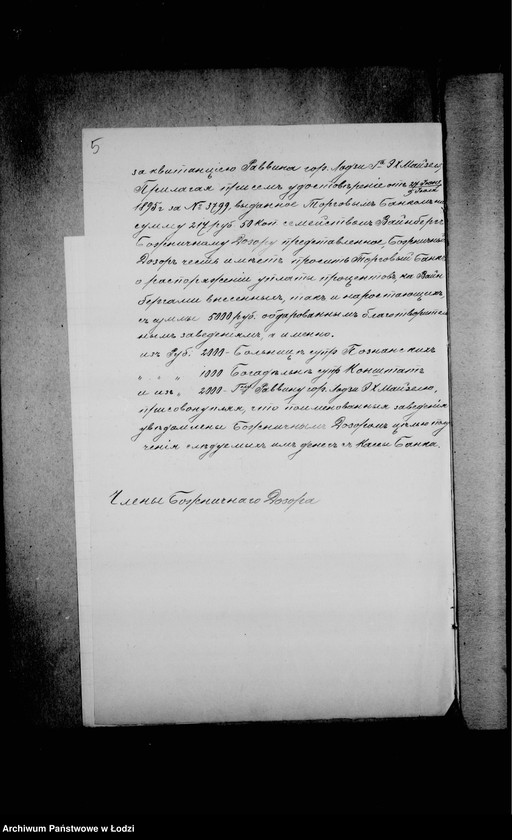 5
за квитанцiею Раввина гор. Лодзи Гна Э Х Майзеля
Прилагая присемъ удостовѣренiе отъ
1895 г за № 5799 выданное Торговымъ Банкомъ на
сумму 217 руб 50 коп семействомъ Вайнбергъ
Божничному Дозору представленное, Божничный
Дозоръ честь имѣетъ просить Торговый Банкъ
о распоряженiи уплаты процентовъ, на Вайн
бергами внесеннымъ, такъ и наростающихъ
съ суммы 5000 руб. обдарованнымъ благотворитель
нымъ заведенiямъ, а именно.
изъ Руб. 2000 - Больницѣ супр Познанскихъ
" " " 1000 Богадѣльнѣ супр Конштатъ
и изъ " 2000 - Гну Раввину гор. Лодзи Э Х Майзелю,
присовокупляя, что поименованныя заведенiя
увѣдомлены Божничнымъ Дозоромъ цѣлью полу
ченiя слѣдуемыхъ имъ денегъ съ Кассы Банка.
Члены Божничнаго Дозора
Archiwum Państwowe w Łodzi